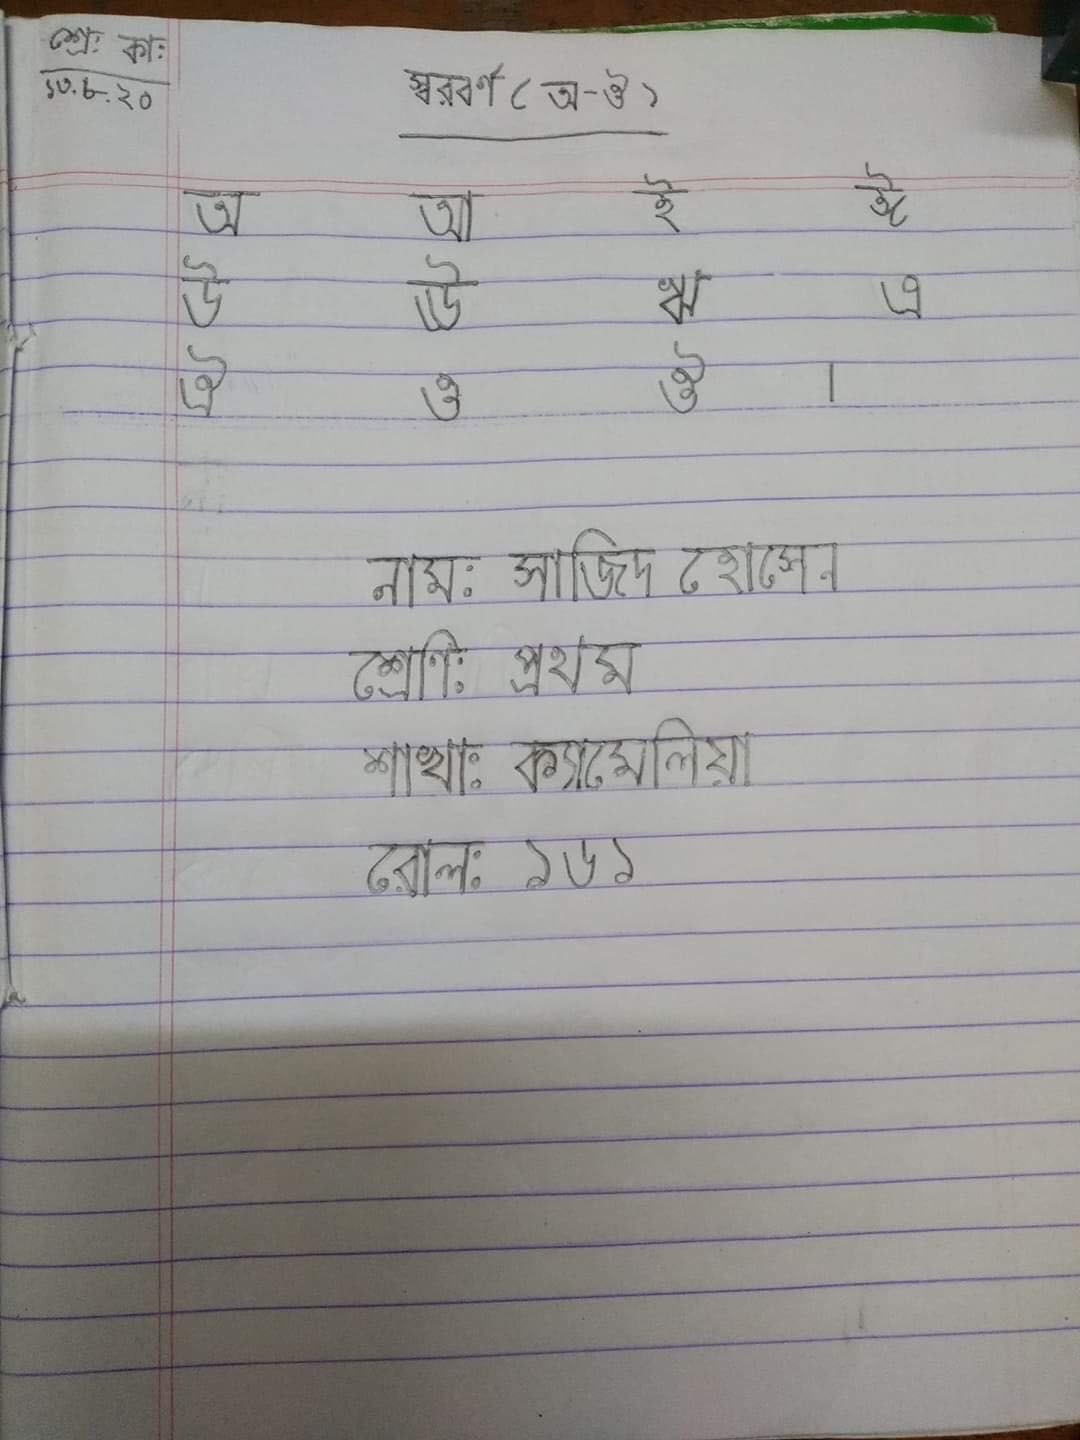 শ্রে: কা:
১০.৮.২০
স্বরবর্ণ (অ-ঔ)
অ আ ই ঈ
উ ঊ ঋ এ
ঐ ও ঔ ।
নাম: সাজিদ হোসেন
শ্রেণি: প্রথম
শাখা: ক্যামেলিয়া
রোল: ১৬১